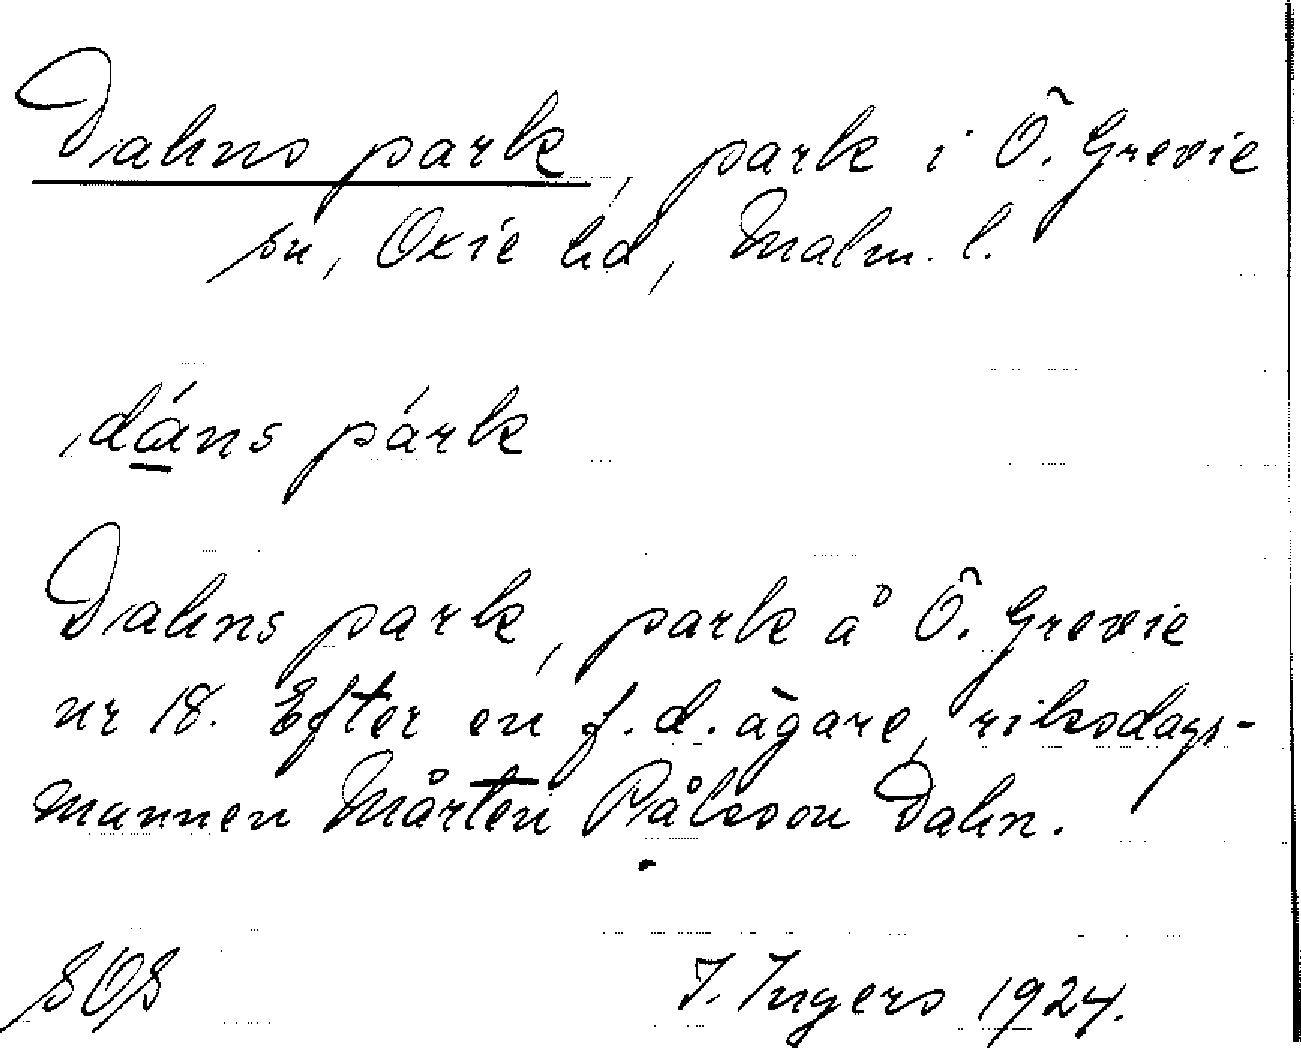 Dahns park, park i Ö. Grevie
sn, Oxie hd, Malm. l.
dáns párk
Dahns park, park å Ö. Grevie
nr 18. Efter en f.d. ägare, riksdags-
mannen Mårten Pålsson Dahn.
SOS
I. Ingers 1924.